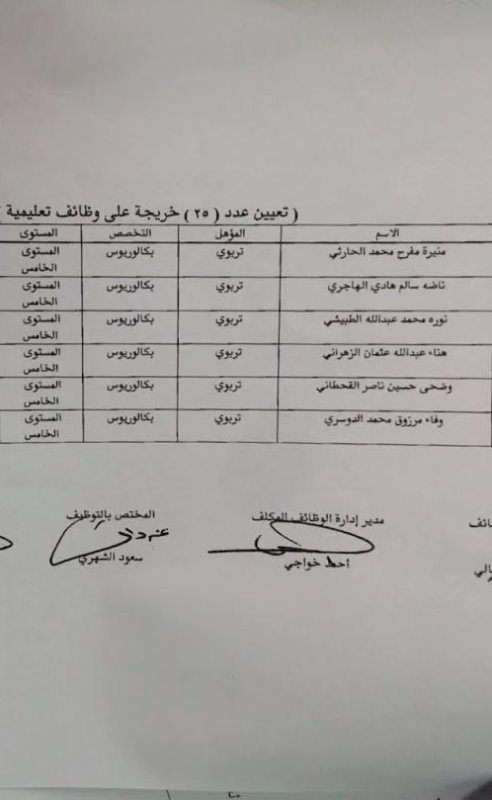 ( تعيين عدد ( ٢٥ ) خريجة على وظائف تعليمية
الاسم المؤهل التخصص المستوى
منيرة مفرح محمد الحارثي تربوي بكالوريوس المستوى الخامس
ناضه سالم هادي الهاجري تربوي بكالوريوس المستوى الخامس
نوره محمد عبدالله الطبيشي تربوي بكالوريوس المستوى الخامس
هناء عبدالله عثمان الزهراني تربوي بكالوريوس المستوى الخامس
وضحى حسين ناصر القحطاني تربوي بكالوريوس المستوى الخامس
وفاء مرزوق محمد الدوسري تربوي بكالوريوس المستوى الخامس
مدير إدارة الوظائف المكلف المختص بالتوظيف
أحمد خواجي سعود الشهري